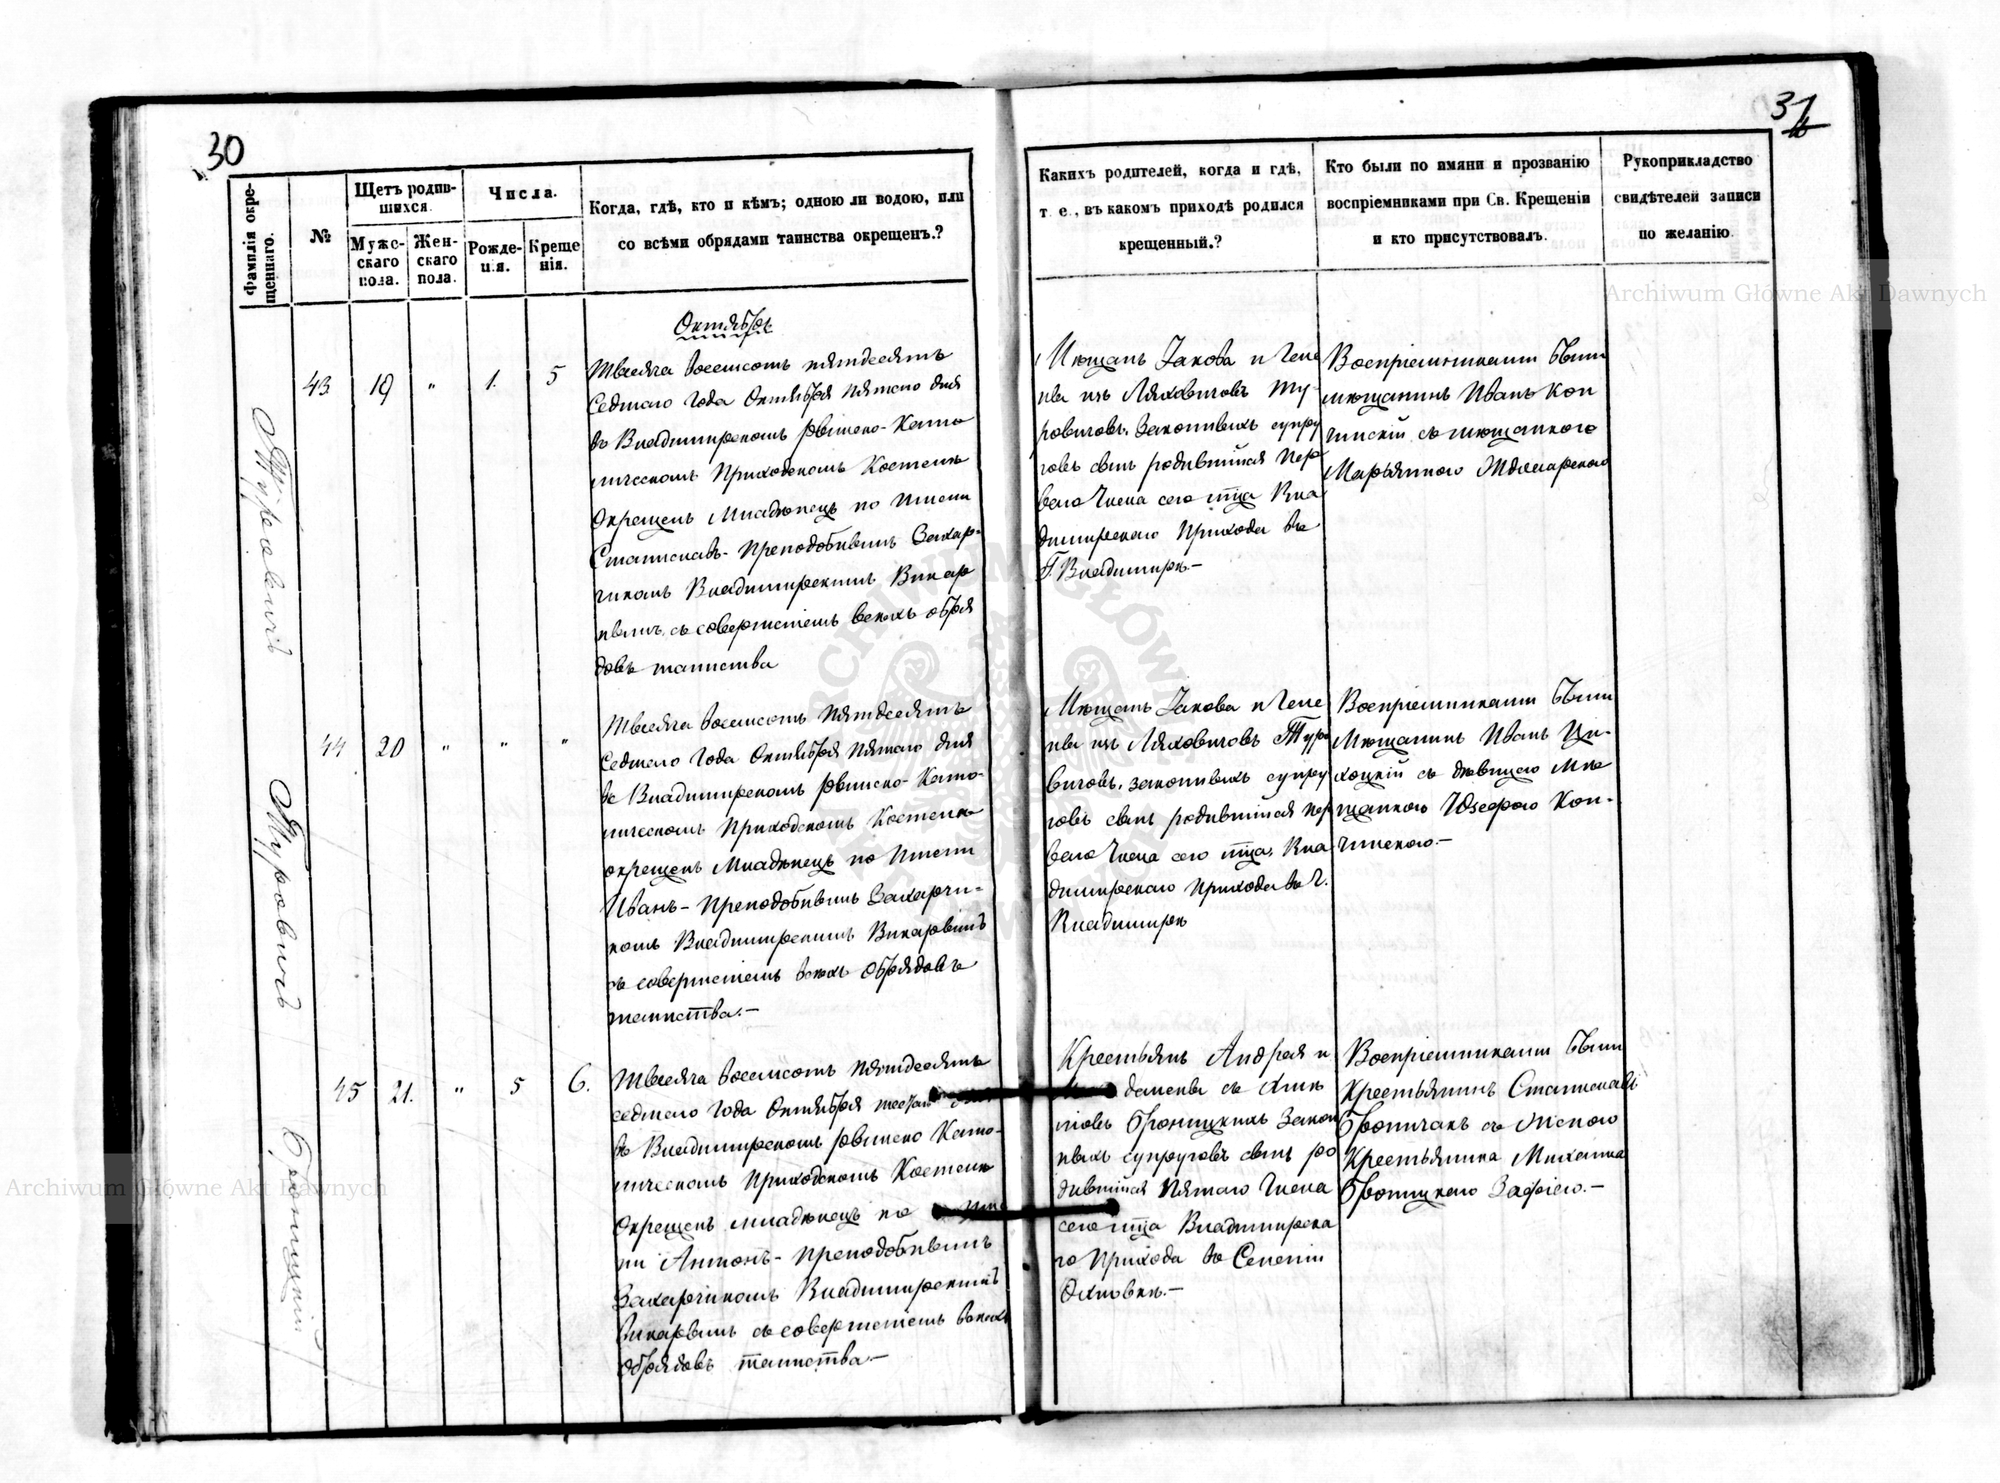 30
Фамилія окре-
щеннаго.
№
Щетъ родив-
шихся.
Мужс-
скаго
пола.
Жен-
скаго
пола.
Числа.
Рожде-
нія.
Креще
нія.
Когда, гдѣ, кто и кѣмъ; одною ли водою, или
со всѣми обрядами таинства окрещенъ.?
Октябрь
Туровичъ
43.
19
"
1.
5
Тысяча восемсотъ пятдесятъ
Седмаго Года Октября Пятаго дня
въ Владимирскомъ Римско-Като
лическомъ Приходскомъ Костелѣ
Окрещенъ Младѣнецъ по Имени
Станиславъ - Преподобнымъ Захар-
чикомъ Владимирскимъ Викар
нымъ, съ совершеніемъ всѣхъ обря
довъ таинства
Туровичъ
44
20
"
"
"
Тысяча восемсотъ Пятдесятъ
Седмаго Года Октября Пятаго дня
въ Владимирскомъ Римско-Като-
лическомъ Приходскомъ Костелѣ
окрещенъ Младѣнецъ по Имени
Иванъ - Преподобнымъ Захарчи-
комъ Владимирскимъ Викарнымъ
съ совершеніемъ всѣхъ Обрядовъ
таинства.-
Броницкій
45
21.
"
5
6.
Тысяча восемсотъ Пятдесятъ
седмаго Года Октября шестаго дня
въ Владимирскомъ Римско Като-
лическомъ Приходскомъ Костелѣ
Окрещенъ младѣнецъ по Име
ни Антонъ - Преподобнымъ
Захарчикомъ Владимирскимъ
Викарнымъ съ совершеніемъ всѣхъ
обрядовъ таинства.-
31
Какихъ родителей, когда и гдѣ,
т. е., въ какомъ приходѣ родился
крещенный.?
Кто были по имяни и прозванію
воспріемниками при Св. Крещеніи
и кто присутствовалъ.
Рукоприкладство
свидѣтелей записи
по желанію.
Мѣщанъ Іакова и Геле
ны изъ Ляховичовъ Ту-
ровичовъ, Законныхъ супру
говъ сынъ родившійся Пер
ваго Числа сего мца Вла
димирскаго Прихода въ
Г. Владимирѣ-
Воспріемниками были
мѣщанинъ Иванъ Коп
чинскій съ мѣщанкою
Марьянною
Мѣщанъ Іакова и Геле
ны изъ Ляховичовъ Туро
вичовъ, законныхъ супру
говъ сынъ родившійся Пер
ваго Числа сего мца, Вла
димирскаго Прихода въ Г.
Владимирѣ
Воспріемниками были
Мѣщанинъ Иванъ Ци-
хоцкій съ дѣвицею Мѣ
щанкою Юзефою Коп-
чинскою.-
Крестьянъ Андрея и
Броницкихъ Закон
ныхъ супруговъ сынъ ро
дившійся Пятаго Числа
сего мца Владимирска
го Прихода въ Селеніи
Охновкѣ.-
Воспріемниками были
Крестьянинъ Станиславъ
съ женою
Крестьянина Михаила
Броницкаго Зофіею.-
Archiwum Główne Akt Dawnych
Archiwum Główne Akt Dawnych